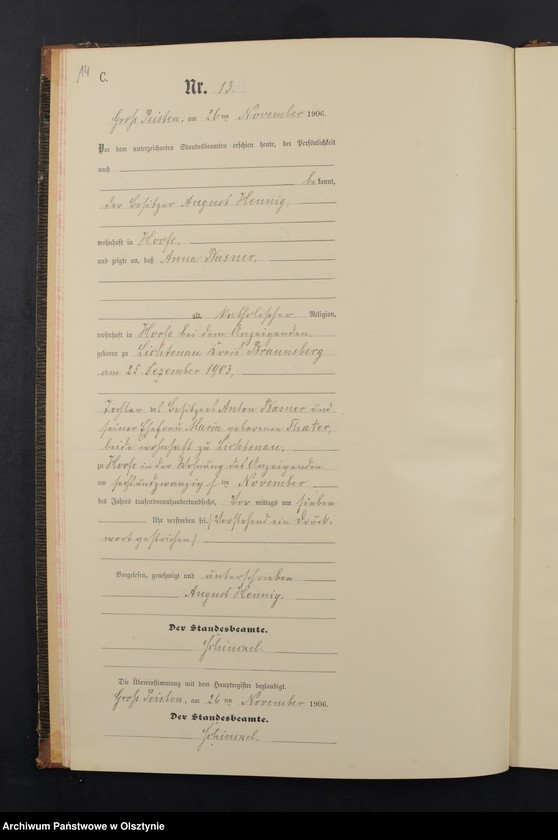 14
C.
Nr. 13.
Groß Peisten, am 26ten November 1906.
Vor dem unterzeichneten Standesbeamten erschien heute, der Persönlichkeit
nach
be kannt,
der Besitzer August Hennig,
wohnhaft in Hoofe,
und zeigte an, daß Anna Wasner,
alt, katholischer Religion,
wohnhaft in Hoofe bei dem Anzeigenden,
geboren zu Lichtenau Kreis Braunsberg
am 25. Dezember 1903,
Tochter des Besitzers Anton Wasner und
seiner Ehefrau Maria geborenen Thater,
beide wohnhaft zu Lichtenau,
zu Hoofe in der Wohnung des Anzeigenden
am sechsundzwanzigsten November
des Jahrs tausendneunhundertundsechs, Vor mittags um sieben
Uhr verstorben sei. (Vorstehend ein Druck-
wort gestrichen)
Vorgelesen, genehmigt und unterschrieben
August Hennig.
Der Standesbeamte.
Die Übereinstimmung mit dem Hauptregister beglaubigt.
Groß Peisten, am 26ten November 1906.
Der Standesbeamte.
Archiwum Państwowe w Olsztynie